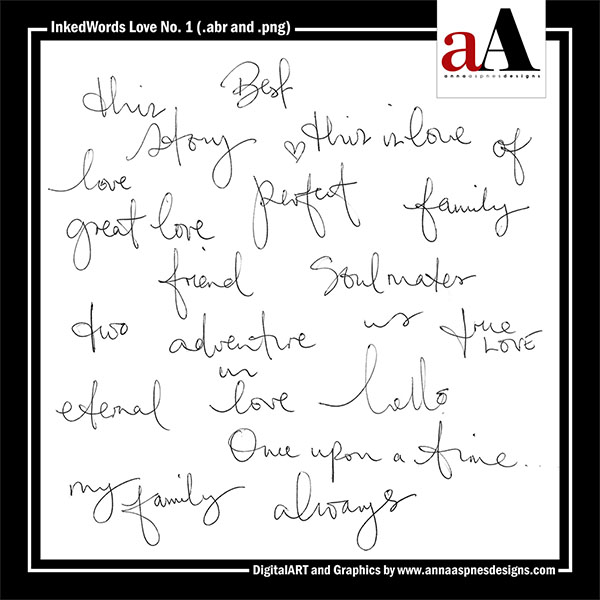 InkedWords Love No. 1 (.abr and .png)
aA
annaaspnesdesigns
Best
this
story
this is love of
love
perfect
family
great love
friend
Soulmates
two
adventure
us
true
LOVE
in
eternal
love
hello
Once upon a time...
my family
always
DigitalART and Graphics by www.annaaspnesdesigns.com